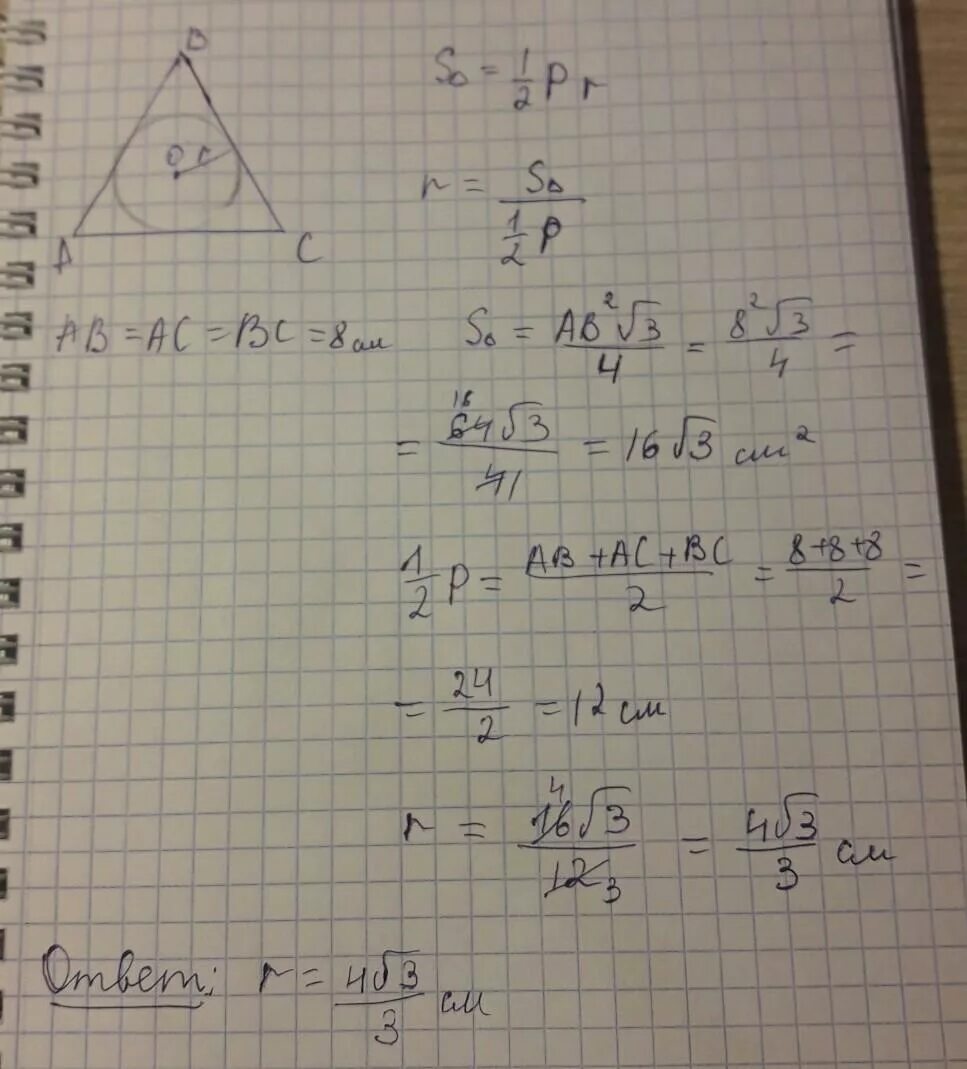 B
O r
A
C
S△ = 1/2 P r
r = S△ / (1/2 P)
AB = AC = BC = 8 см
S△ = AB²√3 / 4 = 8²√3 / 4 =
= 64√3 / 4 = 16√3 см²
16
1
1/2 P = (AB + AC + BC) / 2 = (8+8+8) / 2 =
= 24 / 2 = 12 см
4
r = 16√3 / 12 = 4√3 / 3 см
3
Ответ: r = 4√3 / 3 см